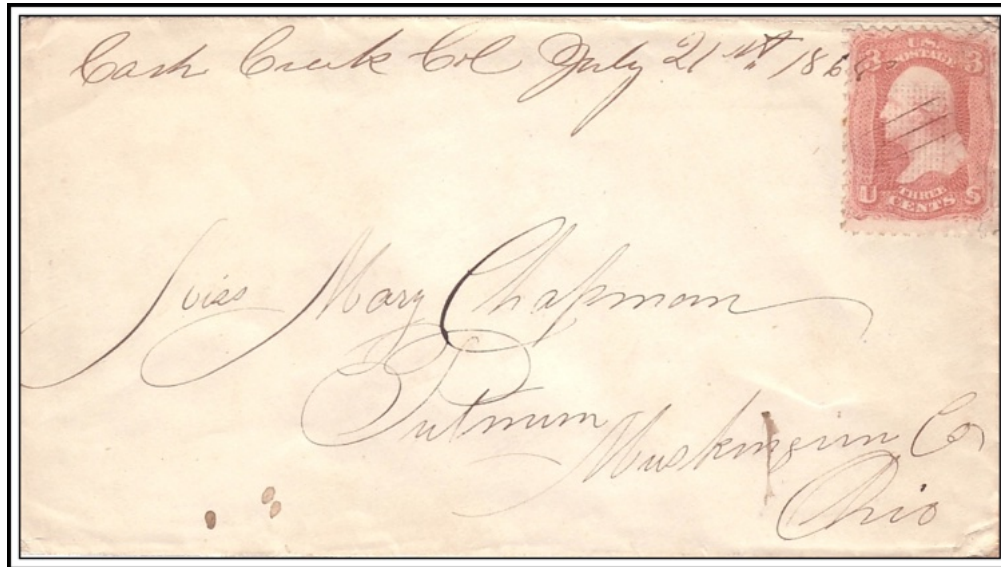 Cash Creek Col July 21st 1868
3 U.S. POSTAGE 3
U THREE CENTS S
Miss Mary Chapman
Putnum
Muskingum Co
Ohio